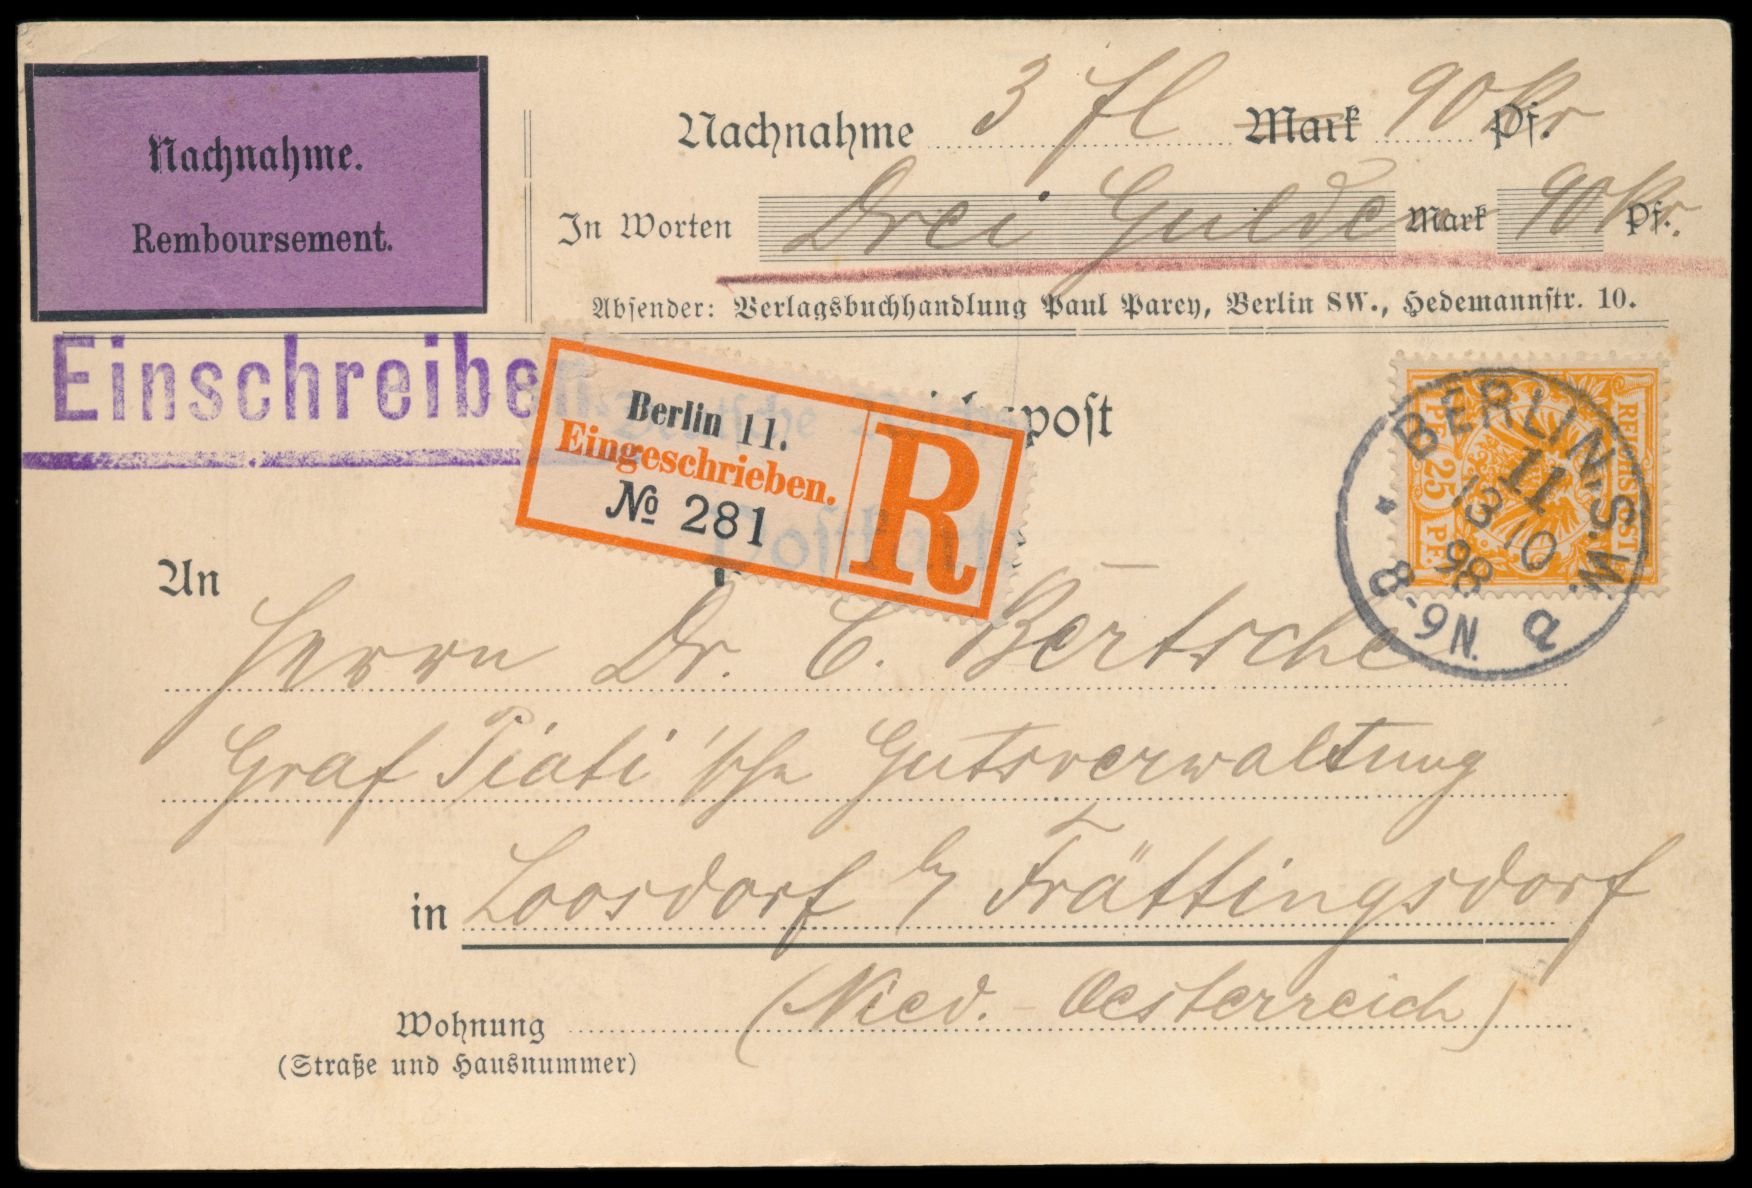 Nachnahme.
Remboursement.
Nachnahme 3 fl Mark 90 Kr Pf.
In Worten Drei Gulden Mark 90 Kr Pf.
Absender: Verlagsbuchhandlung Paul Parey, Berlin SW., Hedemannstr. 10.
Einschreiben.
Deutsche Reichspost
Berlin 11.
Eingeschrieben.
№ 281
R
Postkarte
REICHSPOST
25 PF. 25 PF.
BERLIN, S.W.
11
13 10
98
8-9N. a
An
Herrn Dr. C. Bertsche
Graf Piati'sche Gutsverwaltung
in Loosdorf b/ Frättingsdorf
Wohnung (Nied.-Oesterreich)
(Straße und Hausnummer)